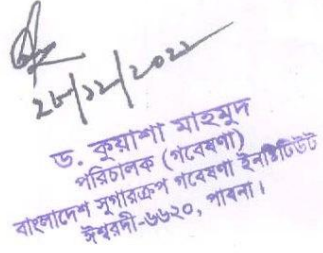 ২৮/১২/২০২২
ড. কুয়াশা মাহমুদ
পরিচালক (গবেষণা)
বাংলাদেশ সুগারক্রপ গবেষণা ইনস্টিটিউট
ঈশ্বরদী-৬৬২০, পাবনা।